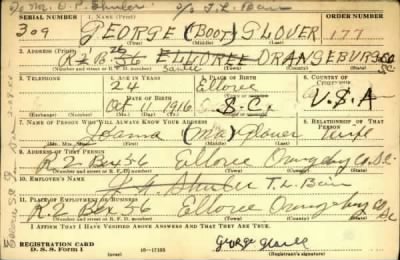 To Mr. D. P. Shuler c/o T. L. Bair
SERIAL NUMBER 1. NAME (Print) ORDER NUMBER
309 GEORGE (BOOT) GLOVER 177
(First) (Middle) (Last)
2. ADDRESS (Print)
R2 B. 56 ELLOREE ORANGEBURG SC
Santee
(Number and street or R. F. D. number) (Town) (County) (State)
3. TELEPHONE 4. AGE IN YEARS 5. PLACE OF BIRTH 6. COUNTRY OF CITIZENSHIP
24 Elloree
DATE OF BIRTH (Town or county)
Oct 11 1916 S.C. U.S.A
(Exchange) (Number) (Mo.) (Day) (Yr.) (State or country)
7. NAME OF PERSON WHO WILL ALWAYS KNOW YOUR ADDRESS 8. RELATIONSHIP OF THAT PERSON
Joanna (Mrs) Glover Wife
(Mr., Mrs., Miss) (First) (Middle) (Last)
9. ADDRESS OF THAT PERSON
R.2 Box 56 Elloree Orangeburg Co SC
(Number and street or R. F. D. number) (Town) (County) (State)
10. EMPLOYER'S NAME
Shuler T. L. Bair
11. PLACE OF EMPLOYMENT OR BUSINESS
R.2 Box 56 Elloree Orangeburg Co SC
(Number and street or R. F. D. number) (Town) (County) (State)
I AFFIRM THAT I HAVE VERIFIED ABOVE ANSWERS AND THAT THEY ARE TRUE.
REGISTRATION CARD
D. S. S. Form 1 16—17105
George